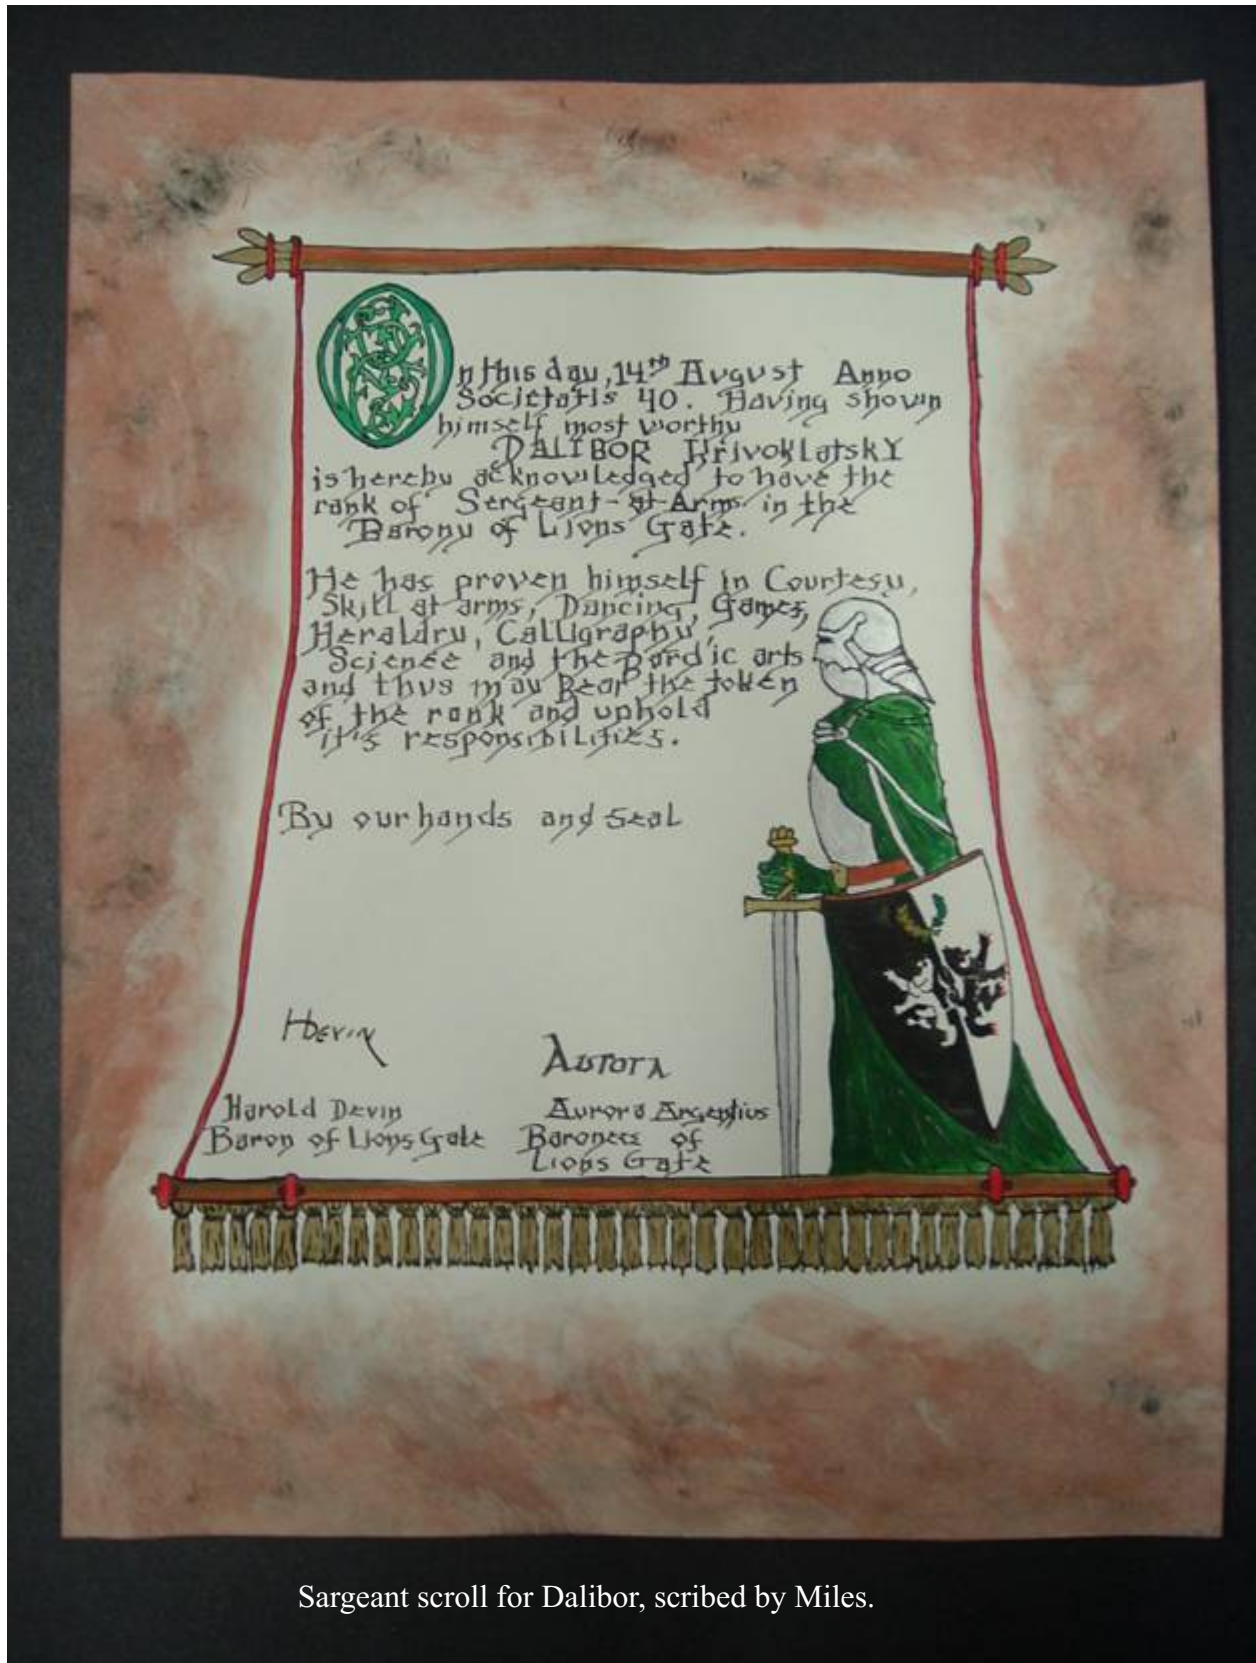 On this day, 14th August Anno
Societatis 40. Having shown
himself most worthy
DALIBOR KřivoklatskY
is hereby acknowledged to have the
rank of Sergeant-at-Arms in the
Barony of Lions Gate.
He has proven himself in Courtesy,
Skill at arms, Dancing, Games,
Heraldry, Calligraphy,
Science and the Bardic arts
and thus may Bear the token
of the rank and uphold
it's responsibilities.
By our hands and Seal
HDevin
Aurora
Harold Devin
Baron of Lions Gate
Aurora Argentius
Baroness of
Lions Gate
Sargeant scroll for Dalibor, scribed by Miles.